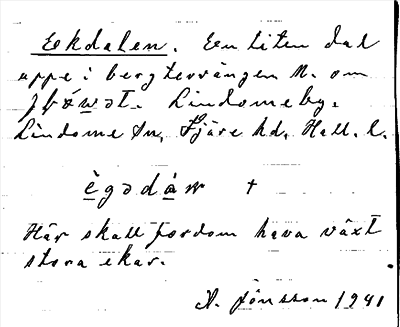 Ekdalen. En liten dal
uppe i bergterrängen N. om
Lindomeby.
Lindome sn, Fjäre hd, Hall. l.
ègədáɯ +
Här skall fordom hava växt
stora ekar.
A. Jönsson 1941